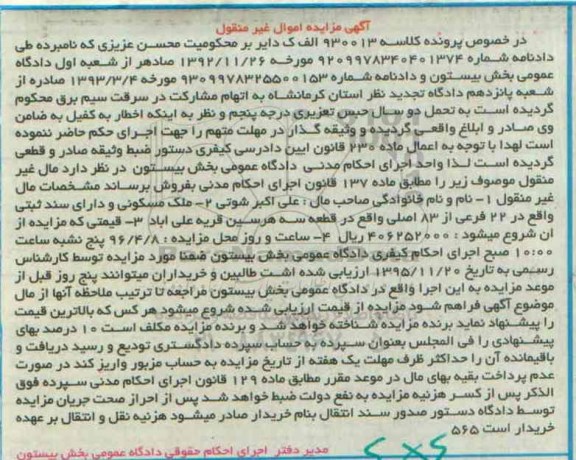 آگهی مزایده اموال غیر منقول
در خصوص پرونده کلاسه ۹۳۰۰۱۳ الف ک دایر بر محکومیت محسن عزیزی که نامبرده طی
دادنامه شماره ۹۲۰۹۹۷۸۳۴۰۴۰۱۳۷۴ مورخه ۱۳۹۲/۱۱/۲۶ صادهر از شعبه اول دادگاه
عمومی بخش بیستون و دادنامه شماره ۹۳۰۹۹۷۸۳۲۵۵۰۰۱۵۳ مورخه ۱۳۹۳/۳/۴ صادره از
شعبه پانزدهم دادگاه تجدید نظر استان کرمانشاه به اتهام مشارکت در سرقت سیم برق محکوم
گردیده است به تحمل دو سال حبس تعزیری درجه پنجم و نظر به اینکه اخطار به کفیل به ضامن
وی صادر و ابلاغ واقعی گردیده و وثیقه گذار در مهلت متهم را جهت اجرای حکم حاضر ننموده
است لهذا با توجه به اعمال ماده ۲۳۰ قانون ایین دادرسی کیفری دستور ضبط وثیقه صادر و قطعی
گردیده است لذا واحد اجرای احکام مدنی دادگاه عمومی بخش بیستون در نظر دارد مال غیر
منقول موصوف زیر را مطابق ماده ۱۳۷ قانون اجرای احکام مدنی بفروش برساند مشخصات مال
غیر منقول ۱- نام و نام خانوادگی صاحب مال : علی اکبر شوتی ۲- ملک مسکونی و دارای سند ثبتی
واقع در ۲۲ فرعی از ۸۳ اصلی واقع در قطعه سه هرسین قریه علی اباد ۳- قیمتی که مزایده از
ان شروع میشود : ۴۰۶۲۵۲۰۰۰ ریال ۴- ساعت و روز محل مزایده : ۹۶/۴/۸ پنج نشبه ساعت
۱۰:۰۰ صبح اجرای احکام کیفری دادگاه عمومی بخش بیستون ضمنا مورد مزایده توسط کارشناس
رسمی به تاریخ ۱۳۹۵/۱۱/۲۰ ارزیابی شده اشت طالبین و خریداران میتوانند پنج روز قبل از
موعد مزایده به این اجرا واقع در دادگاه عمومی بخش بیستون مراجعه تا ترتیب ملاحظه آنها از مال
موضوع آگهی فراهم شود مزایده از قیمت ارزیابی شده شروع میشود هر کس که بالاترین قیمت
را پیشنهاد نماید برنده مزایده شناخته خواهد شد و برنده مزایده مکلف است ۱۰ درصد بهای
پیشنهادی را فی المجلس بعنوان سپرده به حساب سپرده دادگستری تودیع و رسید دریافت و
باقیمانده آن را حداکثر ظرف مهلت یک هفته از تاریخ مزایده به حساب مزبور واریز کند در صورت
عدم پرداخت بقیه بهای مال در موعد مقرر مطابق ماده ۱۲۹ قانون اجرای احکام مدنی سپرده فوق
الذکر پس از کسر هزنیه مزایده به نفع دولت ضبط خواهد شد پس از احراز صحت جریان مزایده
توسط دادگاه دستور صدور سند انتقال بنام خریدار صادر میشود هزنیه نقل و انتقال بر عهده
خریدار است ۵۶۵
مدیر دفتر اجرای احکام حقوقی دادگاه عمومی بخش بیستون